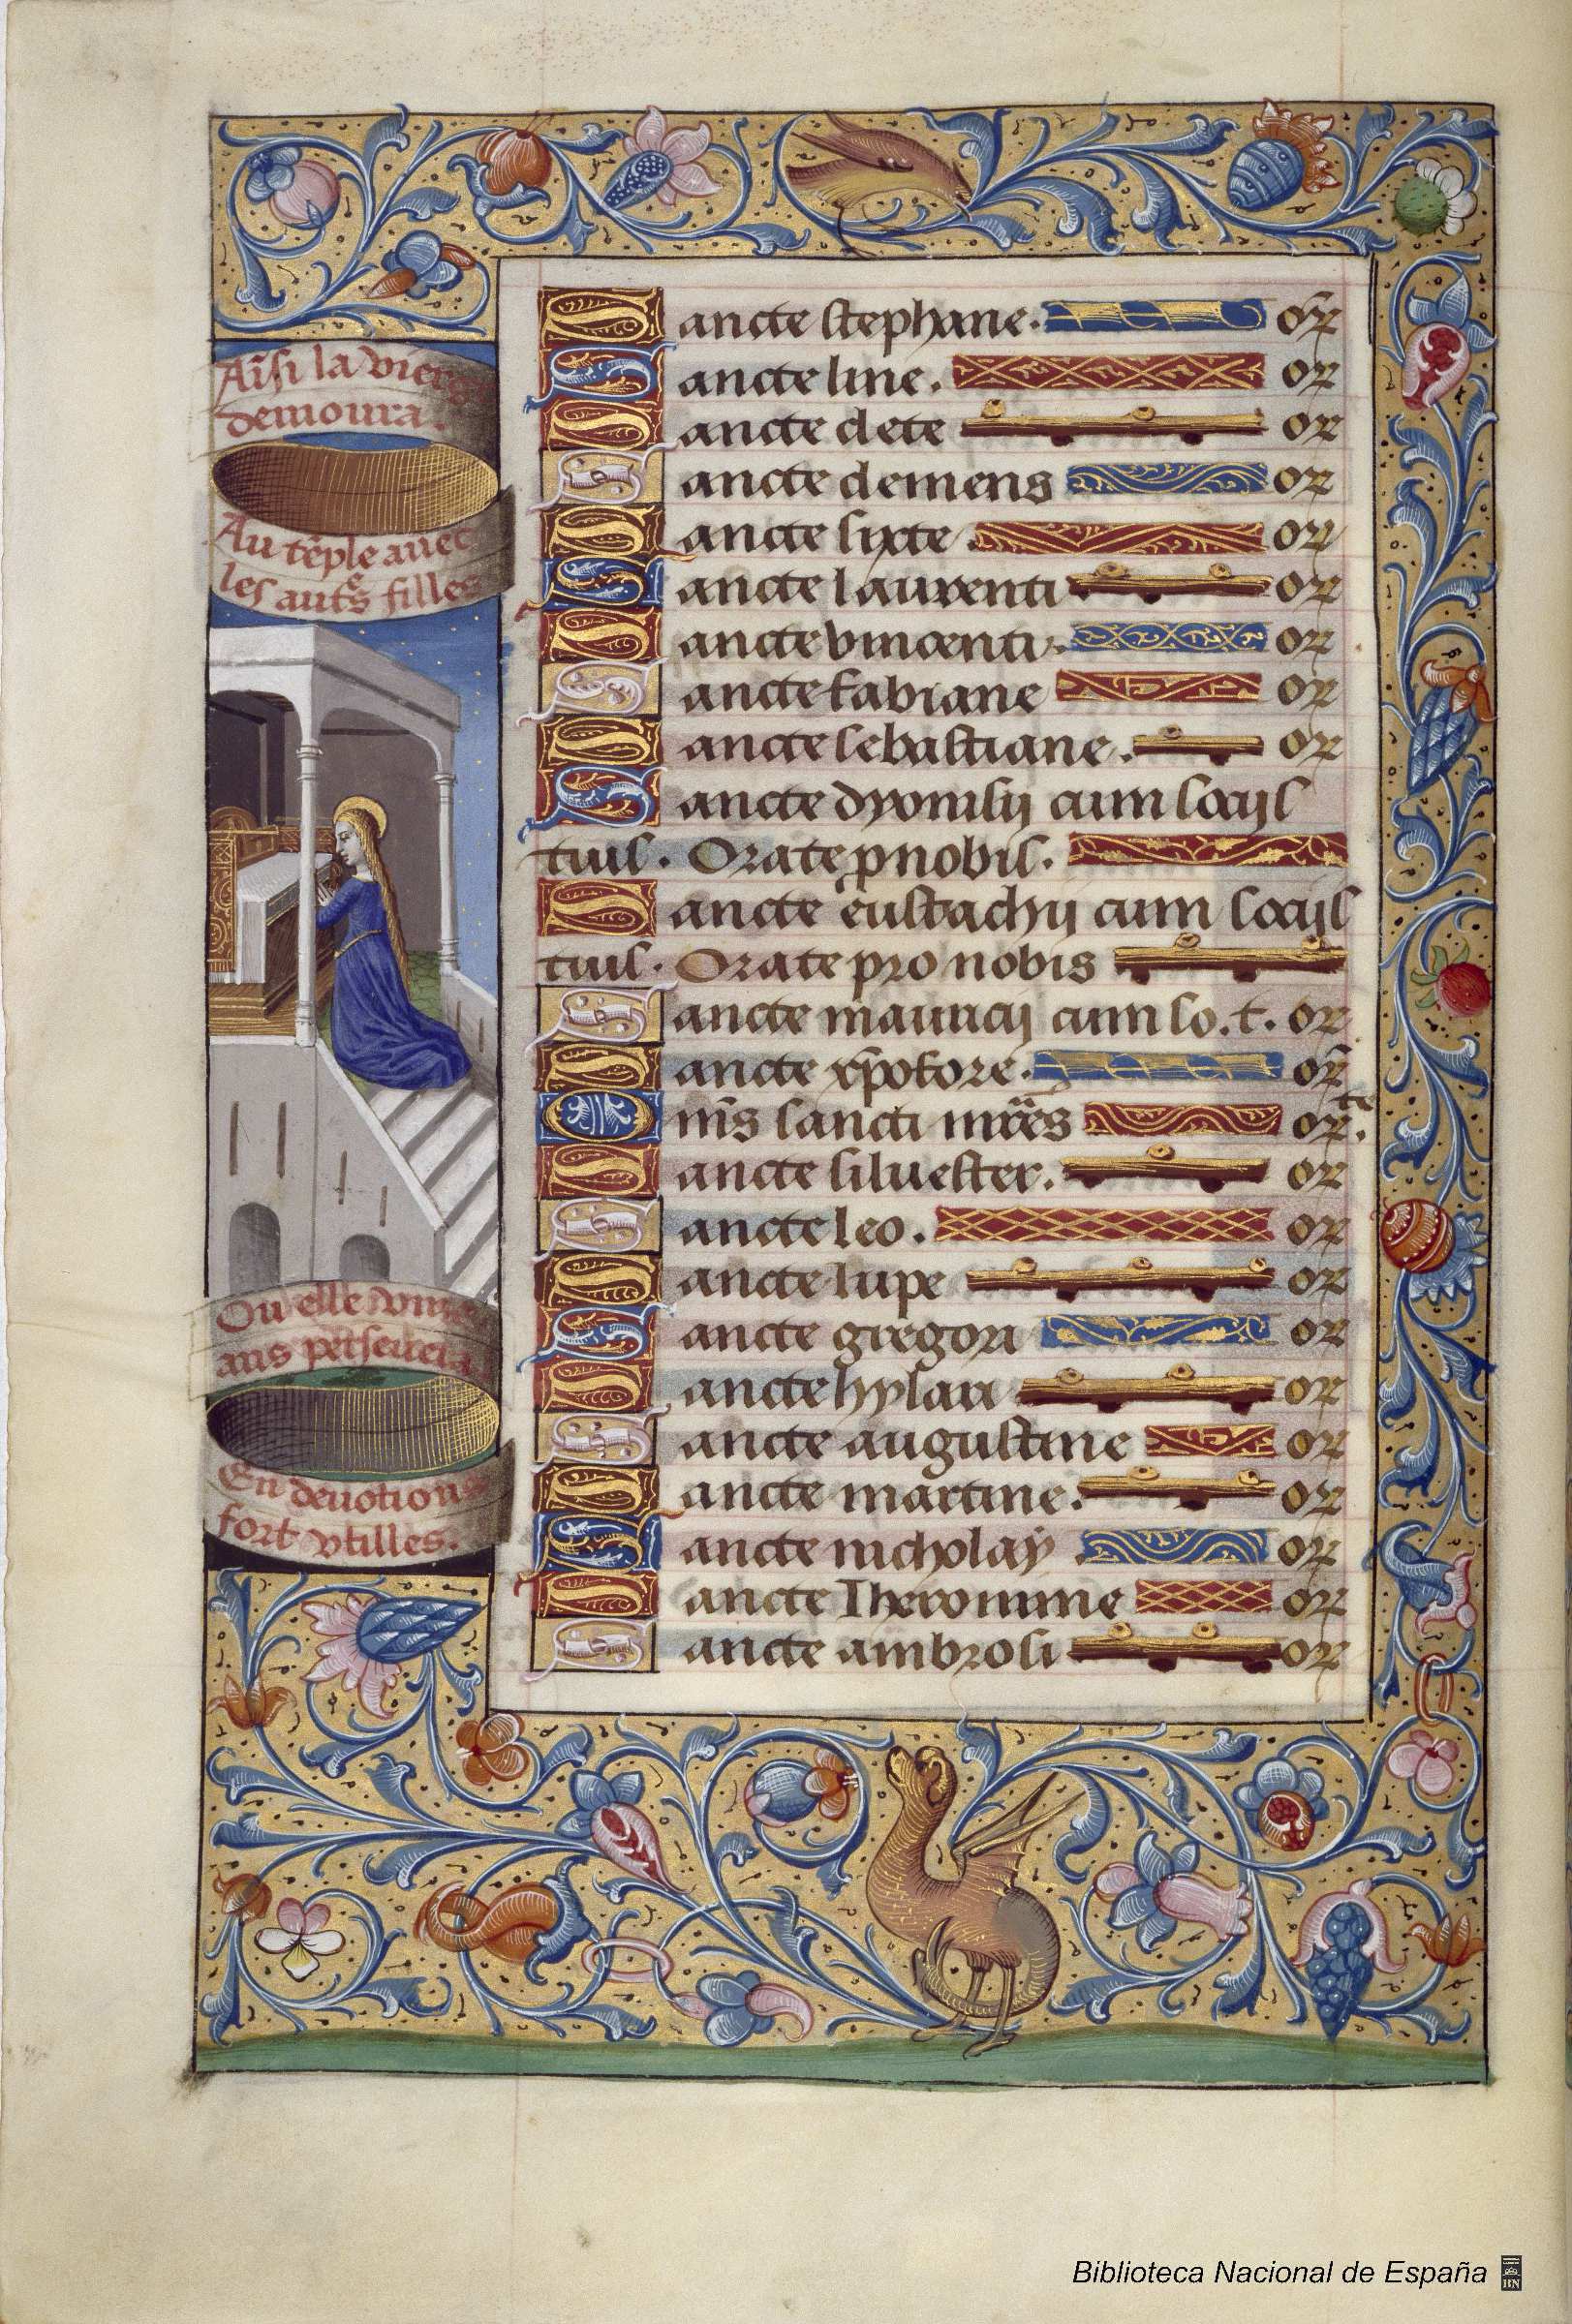 Aīsi la vierge
demoura.
Au tēple avec
les autēs filles
Ou elle
ans perseuera
En deuotions
fort vtilles.
Sancte stephane. or̄
Sancte line. or
Sancte clete or
Sancte clemens or
Sancte sixte. or
Sancte laurenti or
Sancte vincenti. or
Sancte fabiane or
Sancte sebastiane. or
Sancte dyonisij cum socijs
tuis. Orate p nobis.
Sancte eustachij cum socijs
tuis. Orate pro nobis
Sancte mauricij cum so. t. or
Sancte xp̄ofore. or̄
Oīns sancti mr̄es or te.
Sancte siluester. or
Sancte leo. or
Sancte lupe or
Sancte gregori or
Sancte hylari or
Sancte augustine or
Sancte martine. or
Sancte nicholay or
Sancte Iheronime or
Sancte ambrosi or
Biblioteca Nacional de España
BN